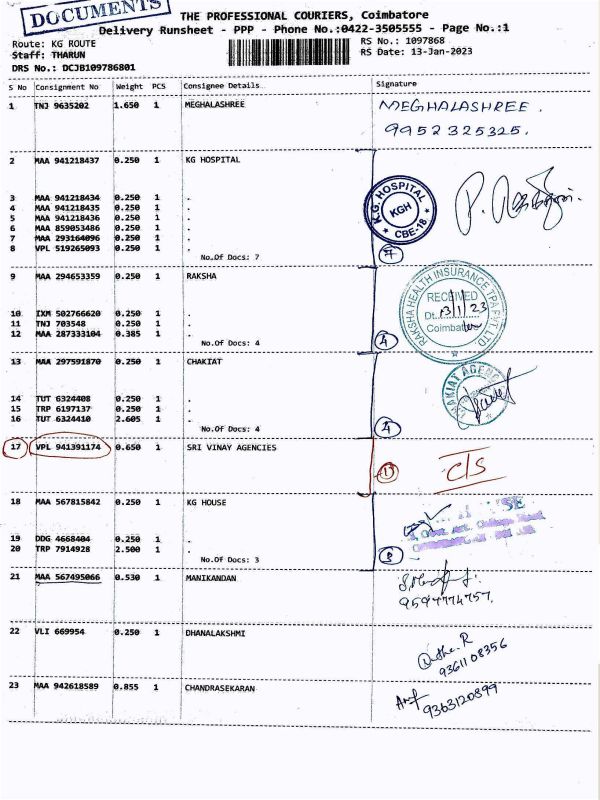 DOCUMENTS
THE PROFESSIONAL COURIERS, Coimbatore
Delivery Runsheet - PPP - Phone No.:0422-3505555 - Page No.:1
Route: KG ROUTE RS No.: 1097868
Staff: THARUN RS Date: 13-Jan-2023
DRS No.: DCJB109786801
S No Consignment No Weight PCS Consignee Details Signature
1 TNJ 9635202 1.650 1 MEGHALASHREE MEGHALASHREE.
9952325325.
2 MAA 941218437 0.250 1 KG HOSPITAL
3 MAA 941218434 0.250 1 .
4 MAA 941218435 0.250 1 .
5 MAA 941218436 0.250 1 .
6 MAA 859053486 0.250 1 .
7 MAA 293164096 0.250 1 .
8 VPL 519265093 0.250 1 .
No.Of Docs: 7
K.G. HOSPITAL
KGH
CBE-18
7
9 MAA 294653359 0.250 1 RAKSHA
10 IXM 502766620 0.250 1 .
11 TNJ 703548 0.250 1 .
12 MAA 287333104 0.385 1 .
No.Of Docs: 4
RAKSHA HEALTH INSURANCE TPA PVT. LTD
RECEIVED
Dt. 13/1/23
Coimbatore
4
13 MAA 297591870 0.250 1 CHAKIAT
14 TUT 6324408 0.250 1 .
15 TRP 6197137 0.250 1 .
16 TUT 6324410 2.605 1 .
No.Of Docs: 4
4
17 VPL 941391174 0.650 1 SRI VINAY AGENCIES 1 C/S
18 MAA 567815842 0.250 1 KG HOUSE
19 DDG 4668404 0.250 1 .
20 TRP 7914928 2.500 1 .
No.Of Docs: 3
3
21 MAA 567495066 0.530 1 MANIKANDAN
9597774757.
22 VLI 669954 0.250 1 DHANALAKSHMI
9361108356
23 MAA 942618589 0.855 1 CHANDRASEKARAN
9363120899